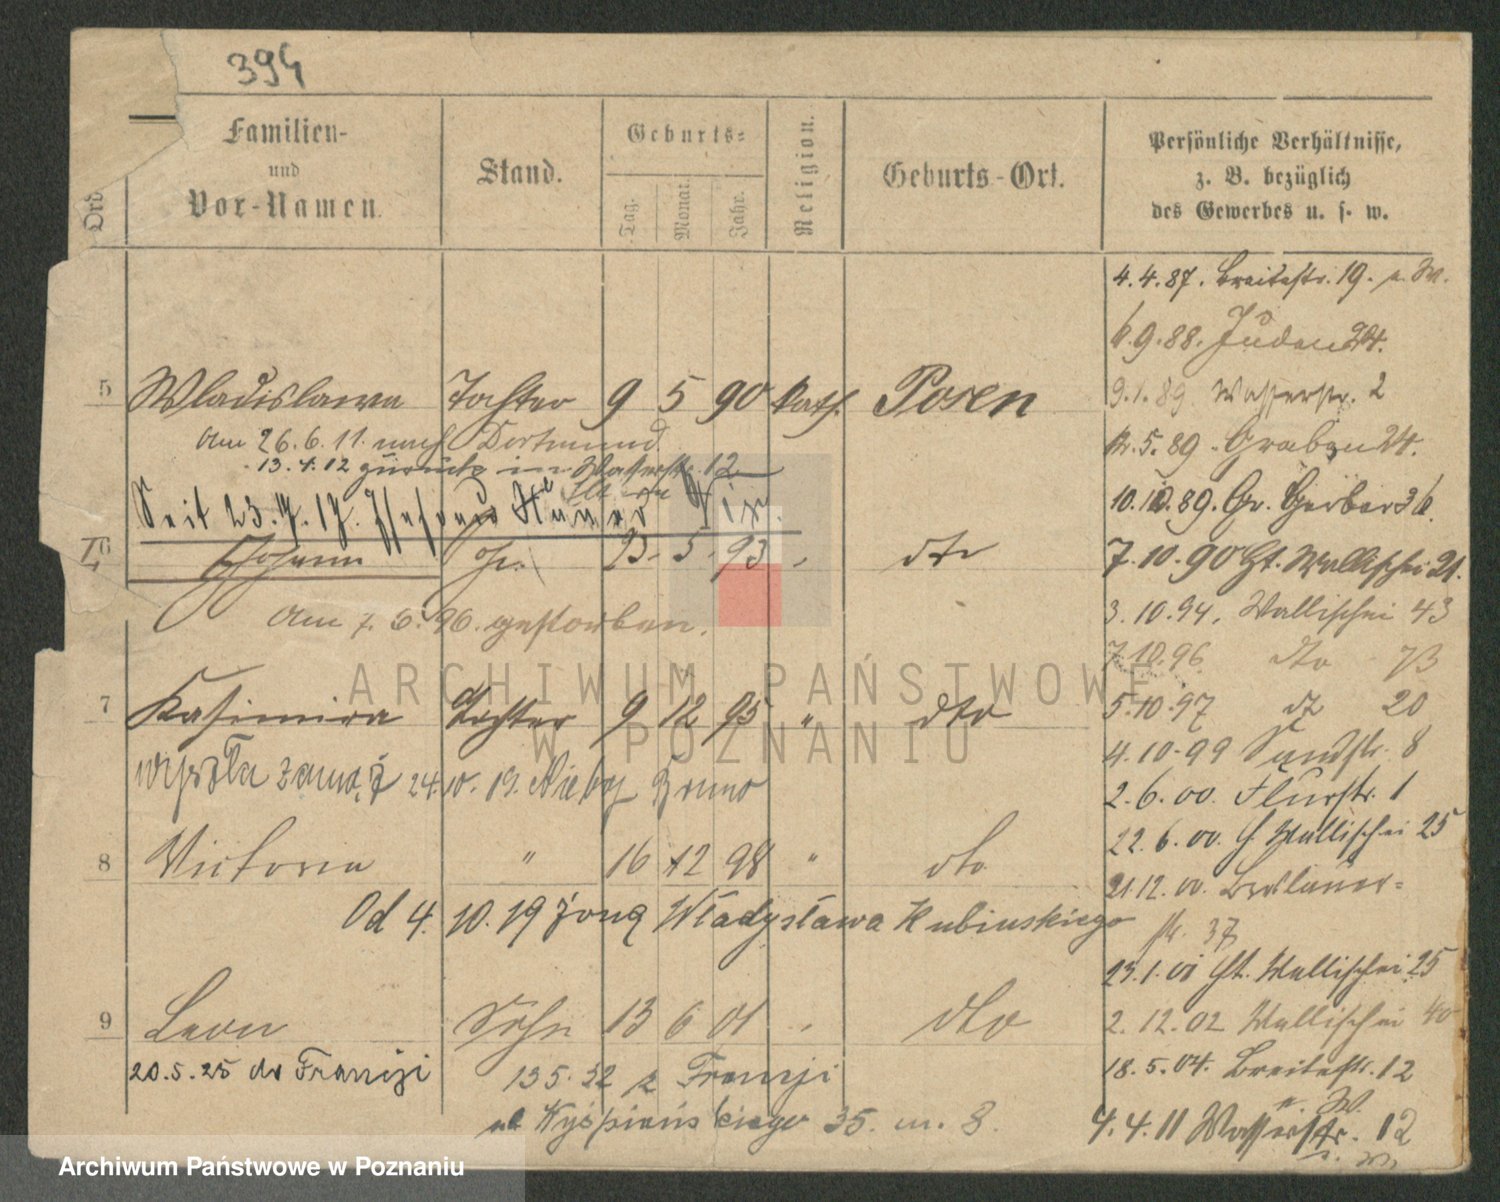 394
Ord
Familien-
und
Vor-Namen.
Stand.
Geburts-
Tag.
Monat.
Jahr.
Religion.
Geburts-Ort.
Persönliche Verhältnisse,
z. B. bezüglich
des Gewerbes u. s. w.
4.4.87. Breitestr. 19.
6.9.88. Juden
9.1.89 Wasserstr. 2
5.89. Graben 24.
10.10.89. Gr. Gerber 36.
7.10.90 Wallischei 21.
3.10.94. Wallischei 43
7.10.96 dto 73
5.10.97 dt 20
4.10.99 Sandstr. 8
2.6.00. Flurstr. 1
22.6.00. Wallischei 25
21.12.00. Breslauer-
str. 37
23.1.01 Wallischei 25
2.12.02 Wallischei 40
18.5.04. Breitestr. 12
4.4.11 Wasserstr. 12
5 Wladislawa Tochter 9 5 90 kath. Posen
Am 26.6.11. nach Dortmund.
13.4.12 zurück in Wasserstr. 12
Seit 23. 17.
6 Johann 23 5 93 dto
Am 7.6.96. gestorben.
7 Kasimira Tochter 9 12 95 " dto
wyszła zamąż 24. 10. 19. Bruno
8 Victoria " 16 12 98 " dto
Od 4. 10. 19 żoną Władysława Kubinskiego
9 Leon Sohn 13 6 01 dto
20.5.25 do Francji
135.32 z Francji
ul Wyśpiańskiego 35. m. 8.
ARCHIWUM PAŃSTWOWE
W POZNANIU
Archiwum Państwowe w Poznaniu